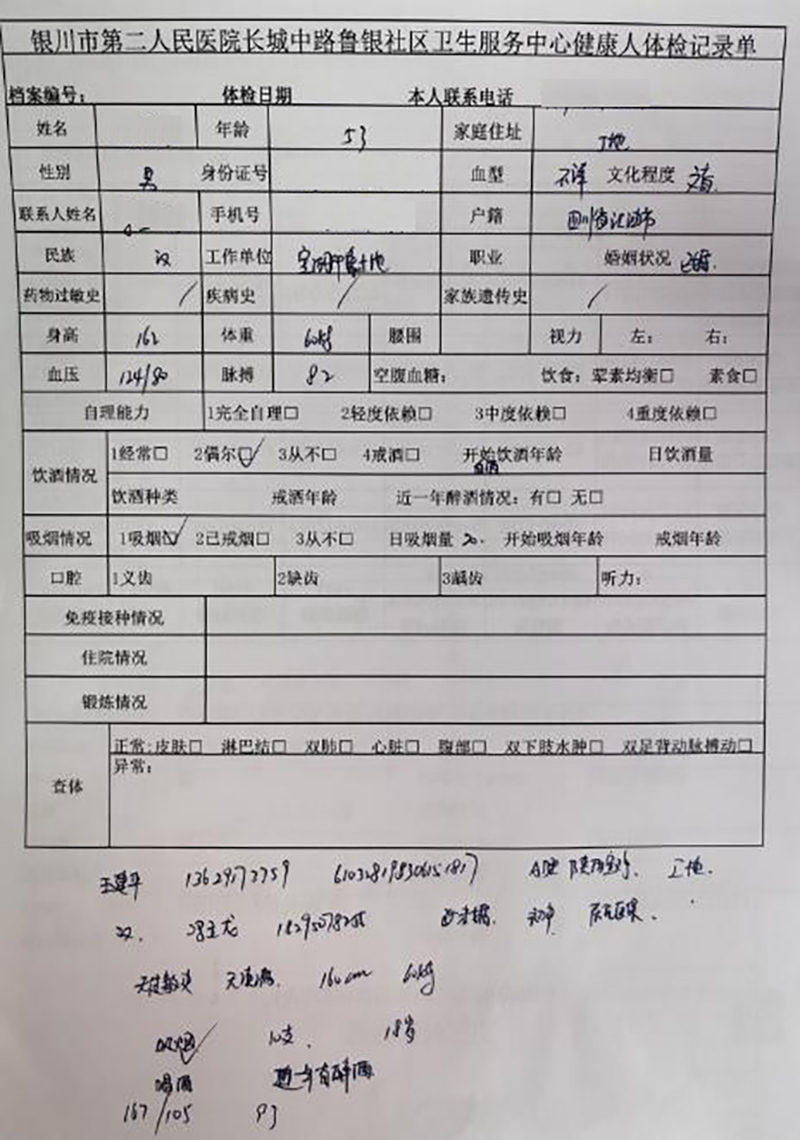 银川市第二人民医院长城中路鲁银社区卫生服务中心健康人体检记录单
档案编号： 体检日期 本人联系电话
姓名 年龄 53 家庭住址 工地
性别 男 身份证号 血型 不详 文化程度
联系人姓名 手机号 户籍 四川省 市
民族 汉 工作单位 工地 职业 婚姻状况 已婚
药物过敏史 / 疾病史 / 家族遗传史 /
身高 162 体重 60kg 腰围 视力 左： 右：
血压 124/80 脉搏 82 空腹血糖： 饮食：荤素均衡□ 素食□
自理能力 1完全自理□ 2轻度依赖□ 3中度依赖□ 4重度依赖□
饮酒情况 1经常□ 2偶尔☑ 3从不□ 4戒酒□ 开始饮酒年龄 日饮酒量
饮酒种类 戒酒年龄 近一年醉酒情况：有□ 无□
吸烟情况 1吸烟☑ 2已戒烟□ 3从不□ 日吸烟量 20. 开始吸烟年龄 戒烟年龄
口腔 1义齿 2缺齿 3龋齿 听力：
免疫接种情况
住院情况
锻炼情况
查体 正常：皮肤□ 淋巴结□ 双肺□ 心脏□ 腹部□ 双下肢水肿□ 双足背动脉搏动□
异常：
王建平 A型 工地.
汉.
160cm 60kg
吸烟✓ 10支. 18岁
喝酒 近一年有醉酒
167/105 93